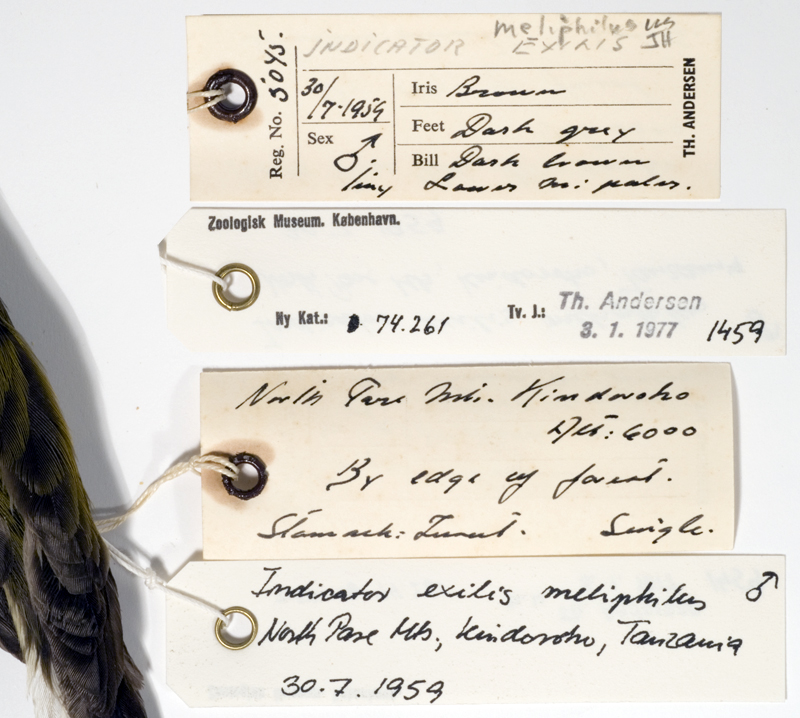 meliphilus
INDICATOR EXILIS JH
Reg. No. 5045.
30/7-1959
Sex ♂.
Iris Brown
Feet Dark grey
Bill Dark brown
tiny Lower m. paler.
TH. ANDERSEN
Zoologisk Museum. København.
Ny Kat.: 74.261
Tv. J.: Th. Andersen
3. 1. 1977 1459
North Pare Mts. Kindoroko
Alt: 6000
By edge of forest.
Stomach: Insect. Single.
Indicator exilis meliphilus ♂
North Pare Mts., Kindoroko, Tanzania
30.7.1959